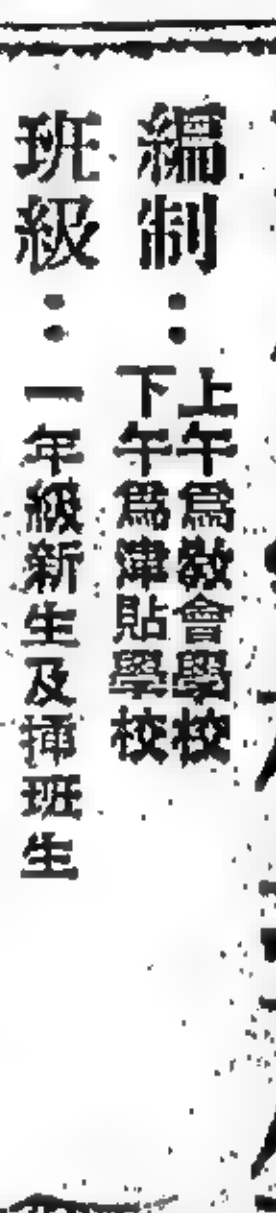 編制：
上午為教會學校
下午為津貼學校
班級：一年級新生及插班生